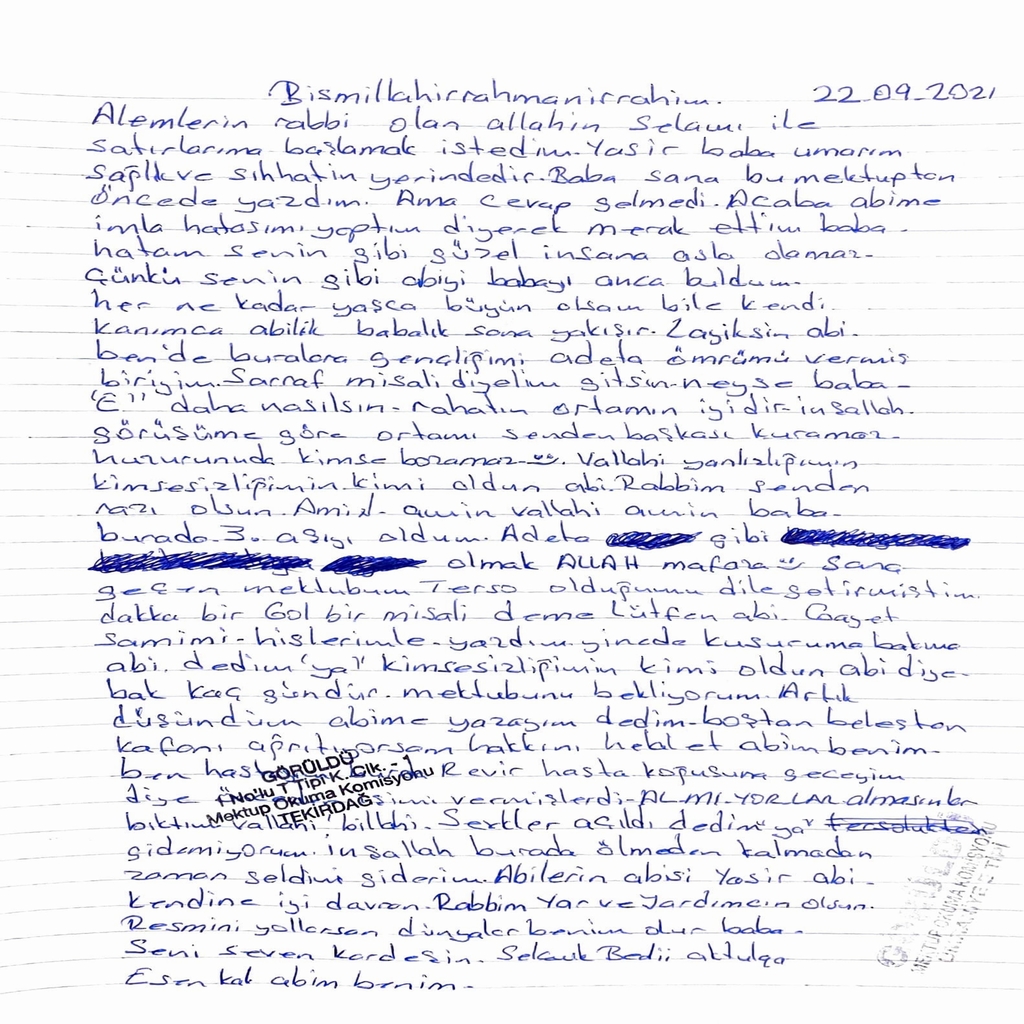 Bismillahirrahmanirrahim. 22.09.2021
Alemlerin rabbi olan allahin Selamı ile
satırlarıma başlamak istedim. Yasir baba umarım
sağlık ve sıhhatin yerindedir. Baba sana bu mektuptan
öncede yazdım. Ama cevap gelmedi. Acaba abime
imla hatasımı yaptım diyerek merak ettim baba.
hatam senin gibi güzel insana asla olamaz.
Çünkü senin gibi abiyi babayı anca buldum.
her ne kadar yaşca büyün olsam bile kendi
kanımca abilik babalık sana yakışır. Layiksin abi.
ben'de buralara gençliğimi adeta ömrümü vermiş
biriyim. Sarraf misali diyelim gitsin-neyse baba-
"E!" daha nasılsın- rahatın ortamın iyidir-inşallah.
görüşüme göre ortamı senden başkası kuramaz-
huzurunuda kimse bozamaz-. Vallahi yanlızlığımın
kimsesizliğimin kimi oldun abi. Rabbim senden
razı olsun. Amin- amin vallahi amin baba-
burada-3. aşıyı oldum. Adeta gibi
olmak ALLAH mafaza Sana
geçen mektubum Terso olduğumu dile getirmiştim.
dakka bir Gol bir misali deme Lütfen abi. Gayet
samimi-hislerimle-yazdım yinede kusuruma bakma
abi. dedim 'ya" kimsesizliğimin kimi oldun abi diye-
bak kaç gündür. mektubunu bekliyorum. Artık
düşündüm abime yazayım dedim-boştan beleşten
kafanı ağrıtıyorsam hakkını helal et abim benim-
ben Revir hasta koğuşuna geceyim
diye vermişlerdi-AL-MI-YORLAR almasınlar
bıktım vallahi billahi. Sevkler açıldı dedim "ya" tersolukten
gidemiyorum. inşallah burada ölmeden kalmadan
zaman geldimi giderim. Abilerin abisi Yasir abi-
kendine iyi davran. Rabbim Yar ve Yardımcın olsun.
Resmini yollarsan dünyalar benim olur baba-
Seni seven kardeşin. Selçuk Bedii aktulga
Esen kal abim benim-
GÖRÜLDÜ
1 No'lu T Tipi K. Cik. - 1
Mektup Okuma Komisyonu
TEKİRDAĞ
MEKTUP OKUMA KOMİSYONU